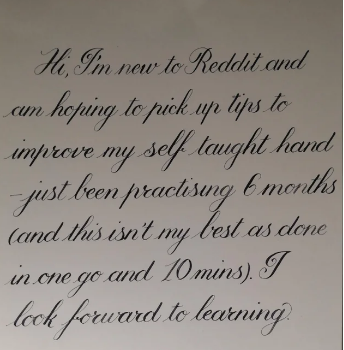 Hi, I'm new to Reddit and
am hoping to pick up tips to
improve my self taught hand
- just been practising 6 months
(and this isn't my best as done
in one go and 10 mins). I
look forward to learning.